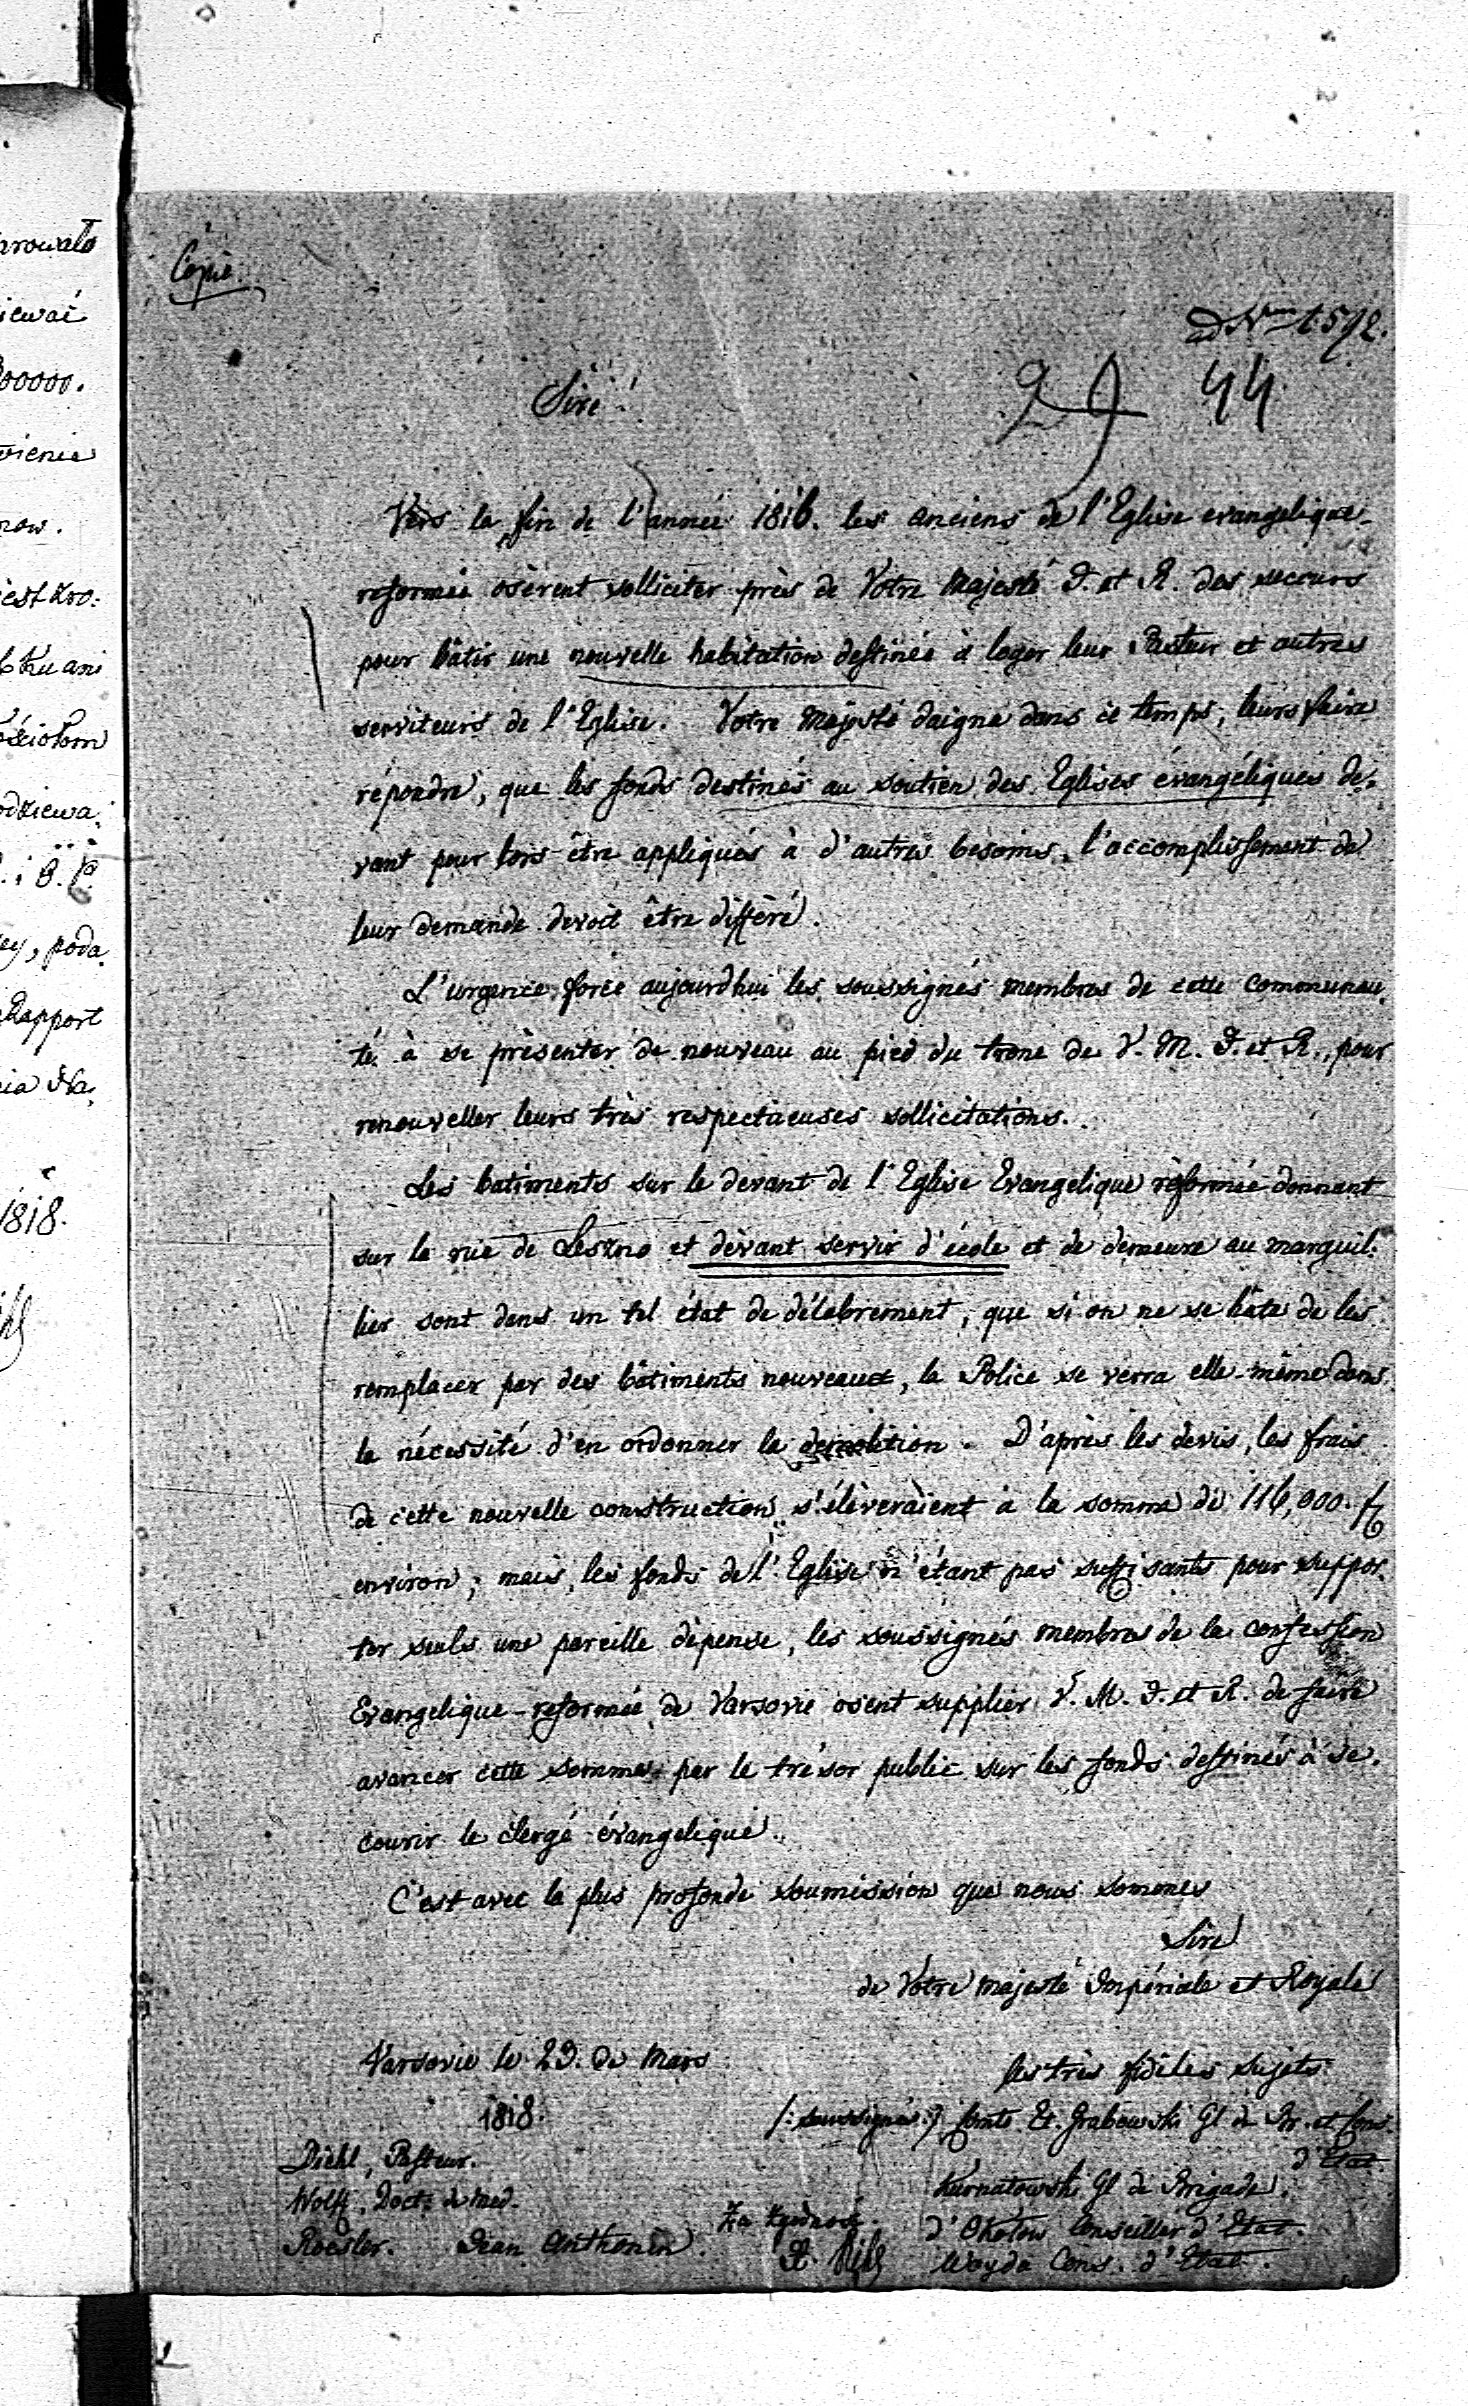 Copie
ad Num 1592.
29 44
Sire!
Vers la fin de l'année 1816. les anciens de l'Eglise evangelique-
reformée osèrent solliciter près de Votre Majesté I. et R. des secours
pour bâtir une nouvelle habitation destinée à loger leur Pasteur et autres
serviteurs de l'Eglise. Votre Majesté daigna dans ce temps, leurs faire
répondre, que les fonds destinés au soutien des Eglises évangéliques de-
vant pour lors être appliqués à d'autres besoins, l'accomplissement de
leur demande devoit être différé.
L'urgence force aujourdhui les soussignés membres de cette communau-
té à se présenter de nouveau au pied du trone de V. M. I. et R., pour
renouveller leurs très respectueuses sollicitations.
Les batiments sur le devant de l'Eglise Evangelique réformée donnant
sur la rue de Leszno et devant servir d'école et de demeure au marguil-
lier sont dans un tel état de délabrement, que si on ne se hâte de les
remplacer par des bâtiments nouveaux, la Police se verra elle-même dans
la nécessité d'en ordonner la demolition. D'après les devis, les frais
de cette nouvelle construction s'élèveraient à la somme de 116,000. f
environ; mais, les fonds de l'Eglise n'étant pas suffisants pour suppor-
ter seuls une pareille dépense, les soussignés membres de la confession
Evangelique-reformée de Varsovie osent supplier V. M. I. et R. de faire
avancer cette somme par le trésor public sur les fonds destinés à se-
courir le clergé évangelique.
C'est avec la plus profonde soumission que nous sommes
Sire
de Votre Majesté Impériale et Royale
Varsovie le 29. de Mars
1818.
les très fidèles sujets
/: soussignés :/ Comte Et. Grabowski Gl de Br. et Cons.
d'Etat.
Diehl, Pasteur.
Kurnatowski Gl de Brigade.
Wolff, Doct: de Med.
Za zgodność.
d'Okolow Conseiller d'Etat.
Roesler. Jean Anthonin.
Woyda Cons. d'Etat.
1818.
00000.
Rapport
, poda